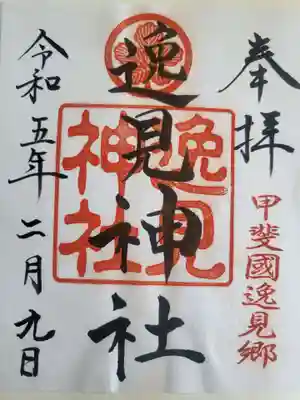 奉拝
甲斐國逸見郷
逸見神社
逸見
神社
令和五年二月九日